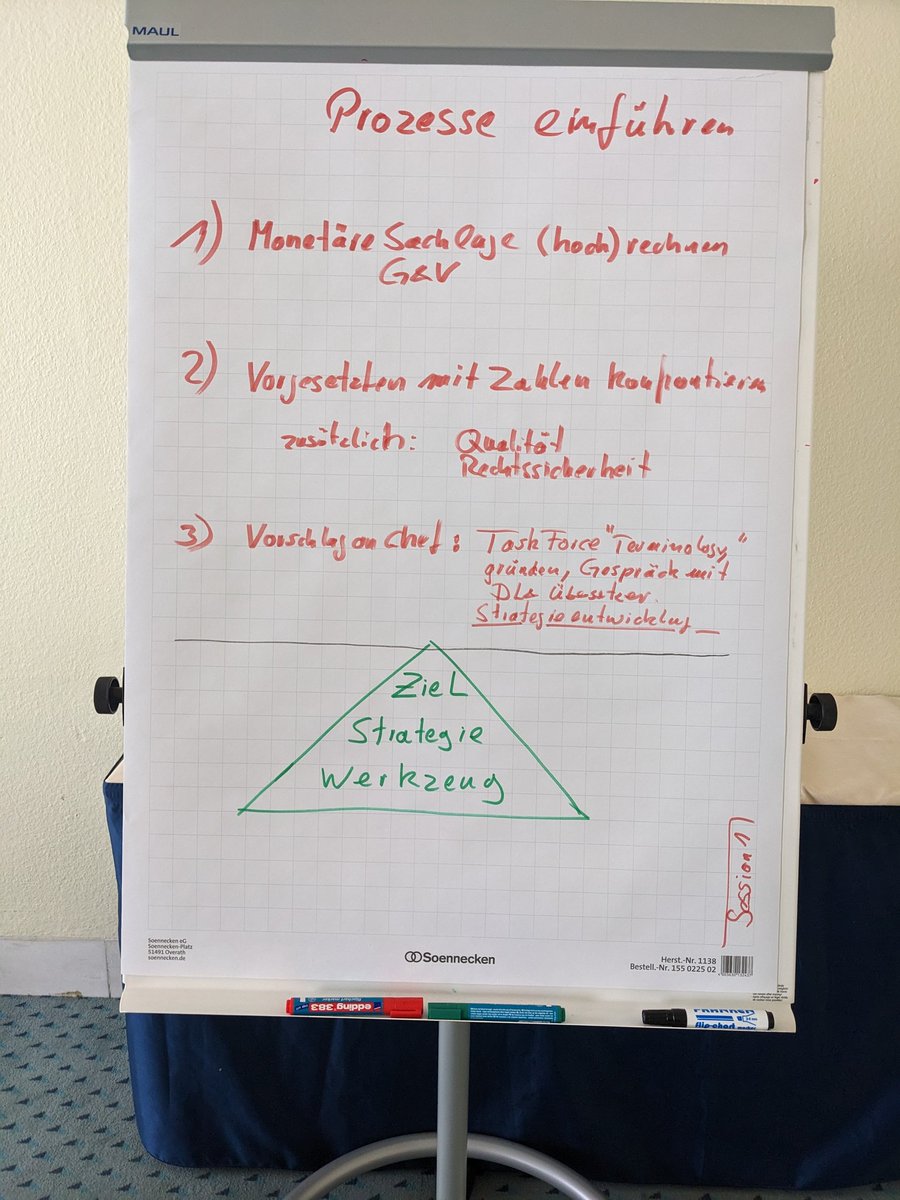 MAUL
Prozesse einführen
1) Monetäre Sachlage (hoch)rechnen
G&V
2) Vorgesetzten mit Zahlen konfrontieren
zusätzlich: Qualität
Rechtssicherheit
3) Vorschlag an Chef: Task Force "Terminology"
gründen, Gespräch mit
Strategieentwicklung
Ziel
Strategie
Werkzeug
Session 1
Soennecken eG
Soennecken-Platz
51491 Overath
soennecken.de
Soennecken
Herst.-Nr. 1138
Bestell.-Nr. 155 0225 02
edding 383
flipchart marker
flip-chart marker